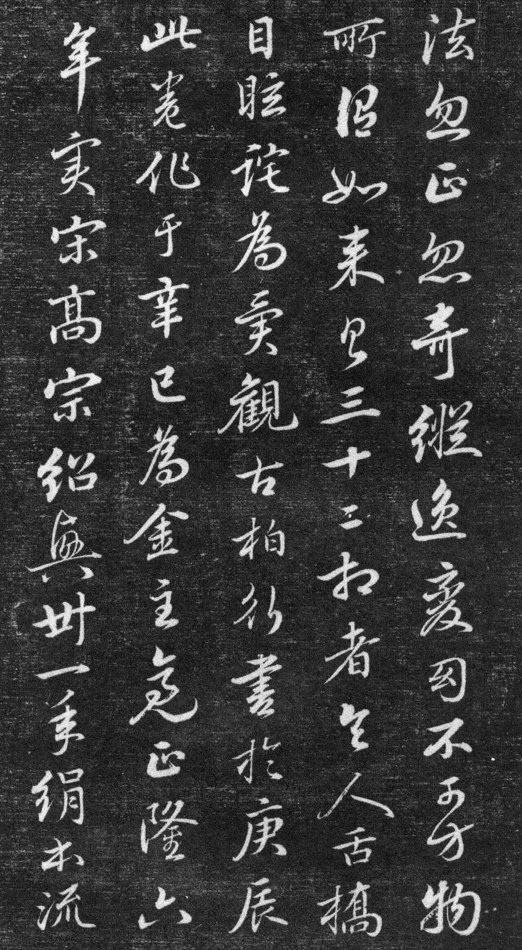 法忽正忽奇縱逸變幻不可方物
所謂如來具三十二相者令人舌撟
目眩詫為異觀古柏行書於庚辰
此卷作于辛巳為金主亮正隆六
年实宋高宗紹興卅一年絹本流